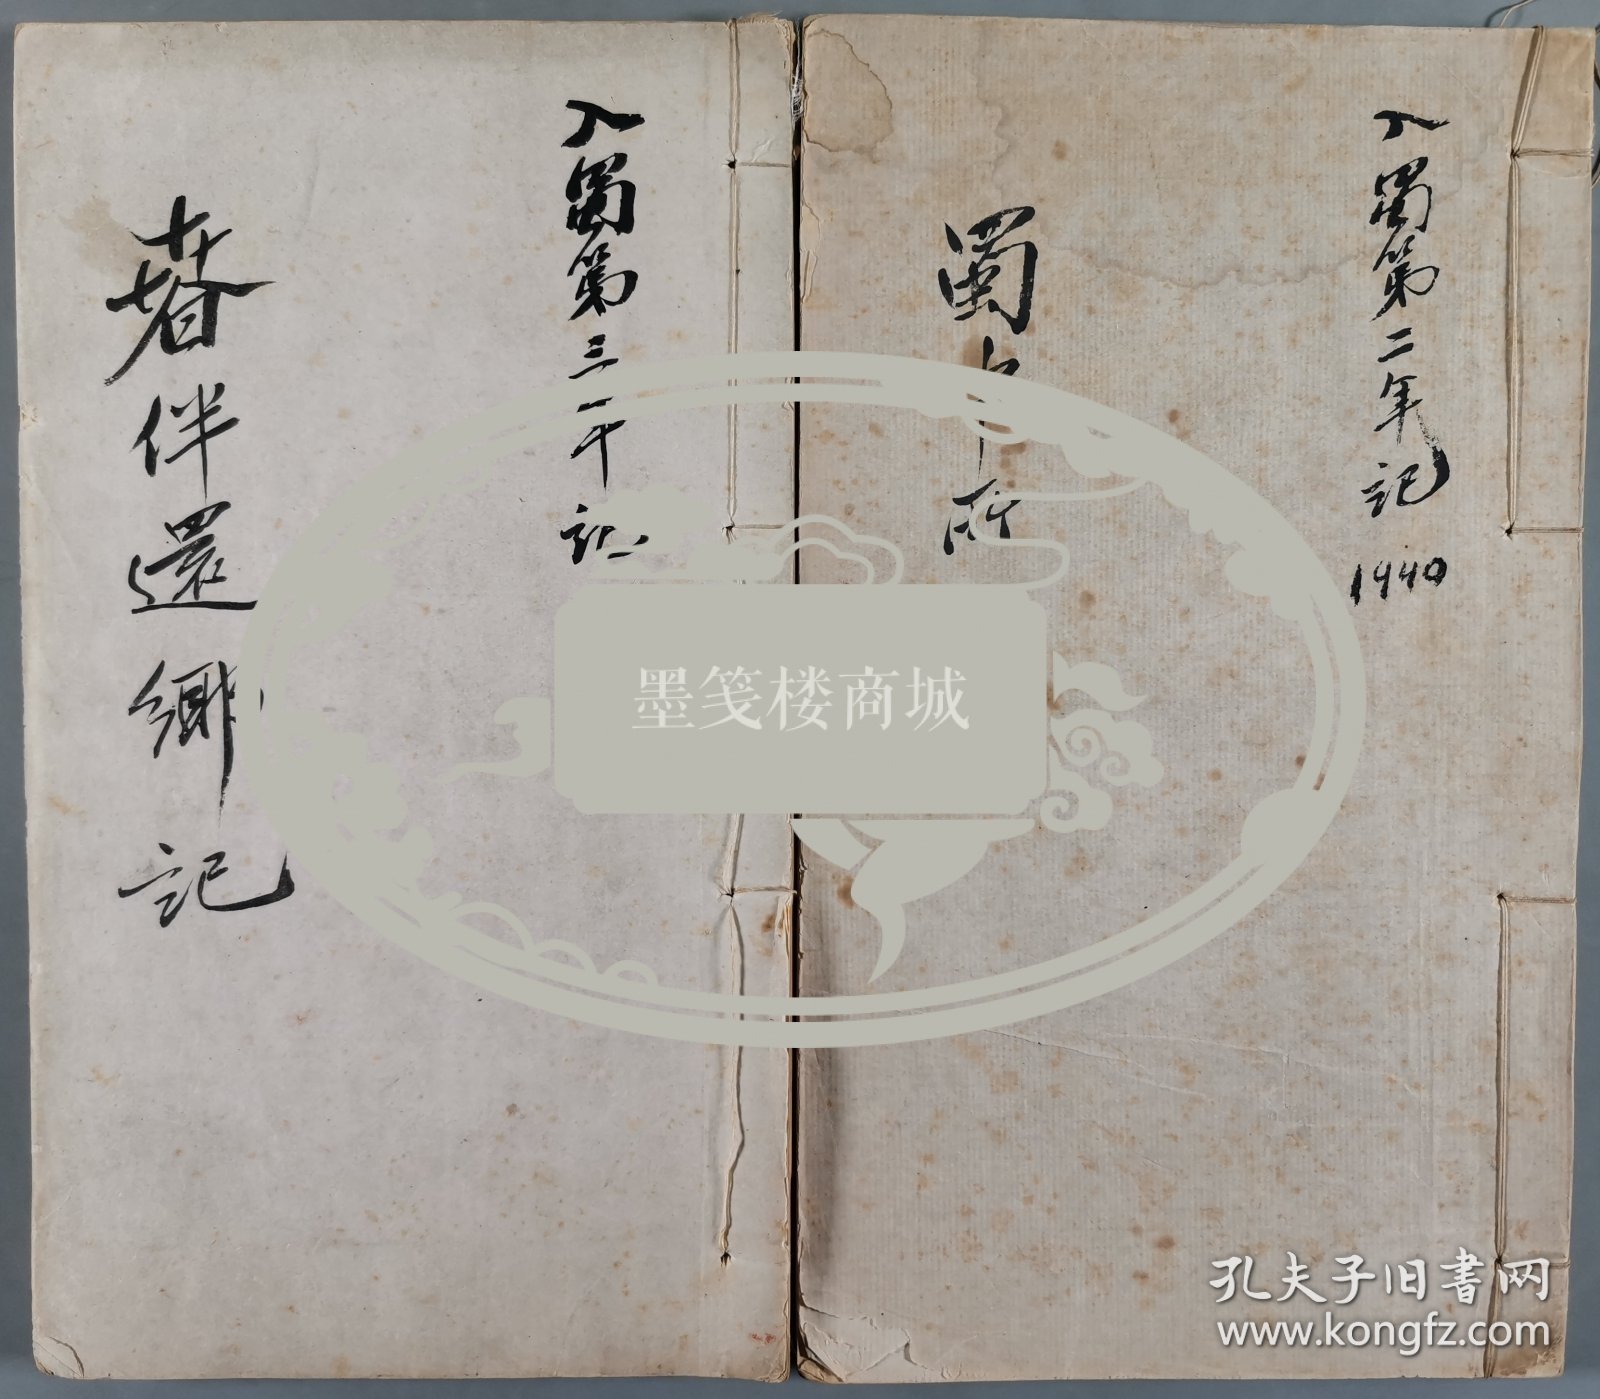 入蜀第二年記
1940
蜀
所
入蜀第三年記
春伴還鄉記
墨笺楼商城
孔夫子旧書网
www.kongfz.com